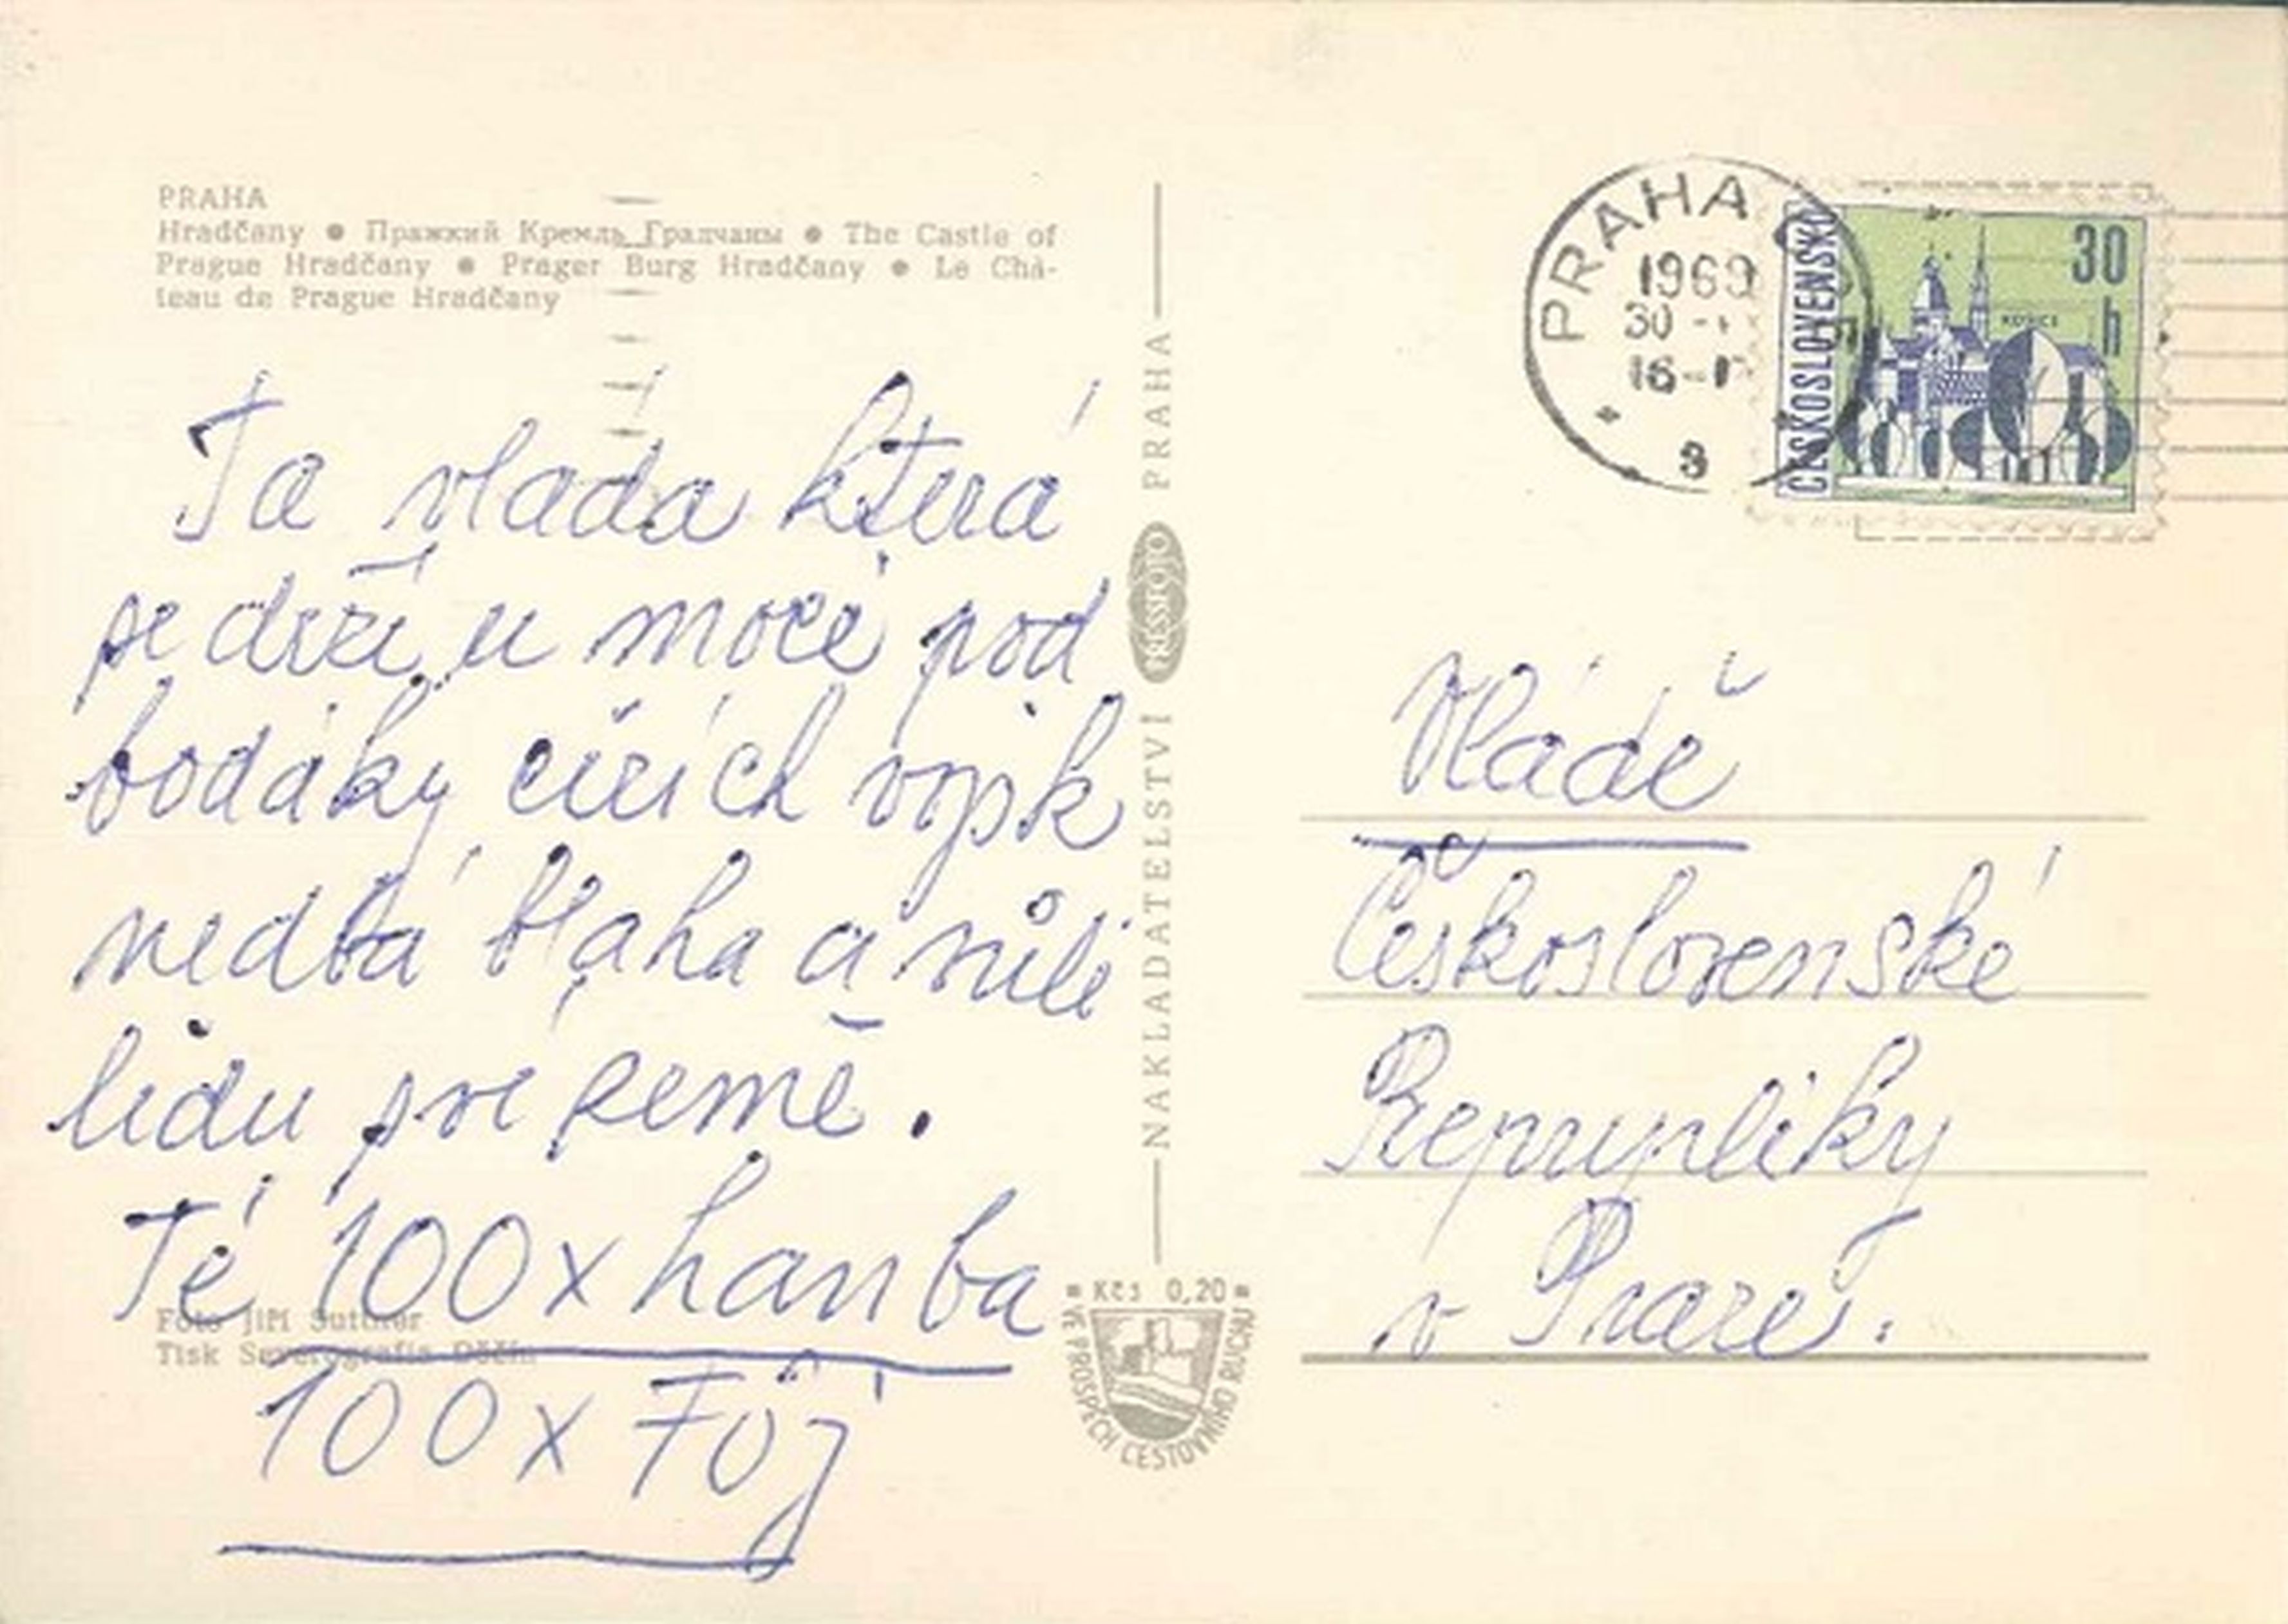 PRAHA
Hradčany ● Пражкий Кремль Градчаны ● The Castle of
Prague Hradčany ● Prager Burg Hradčany ● Le Châ-
teau de Prague Hradčany
Ta vláda která
se drží u moci pod
bodáky cizích vojsk
nedbá blaha a vůli
lidu své země.
Té 100x hanba
100x Fůj
Foto Jiří Suttner
Tisk Severografia Děčín
NAKLADATELSTVÍ PRESSFOTO PRAHA
Kčs 0,20
VE PROSPĚCH CESTOVNÍHO RUCHU
PRAHA
1969
30
16
3
ČESKOSLOVENSKO
30
h
KOŠICE
Vládě
Československé
Repupliky
v Praze.